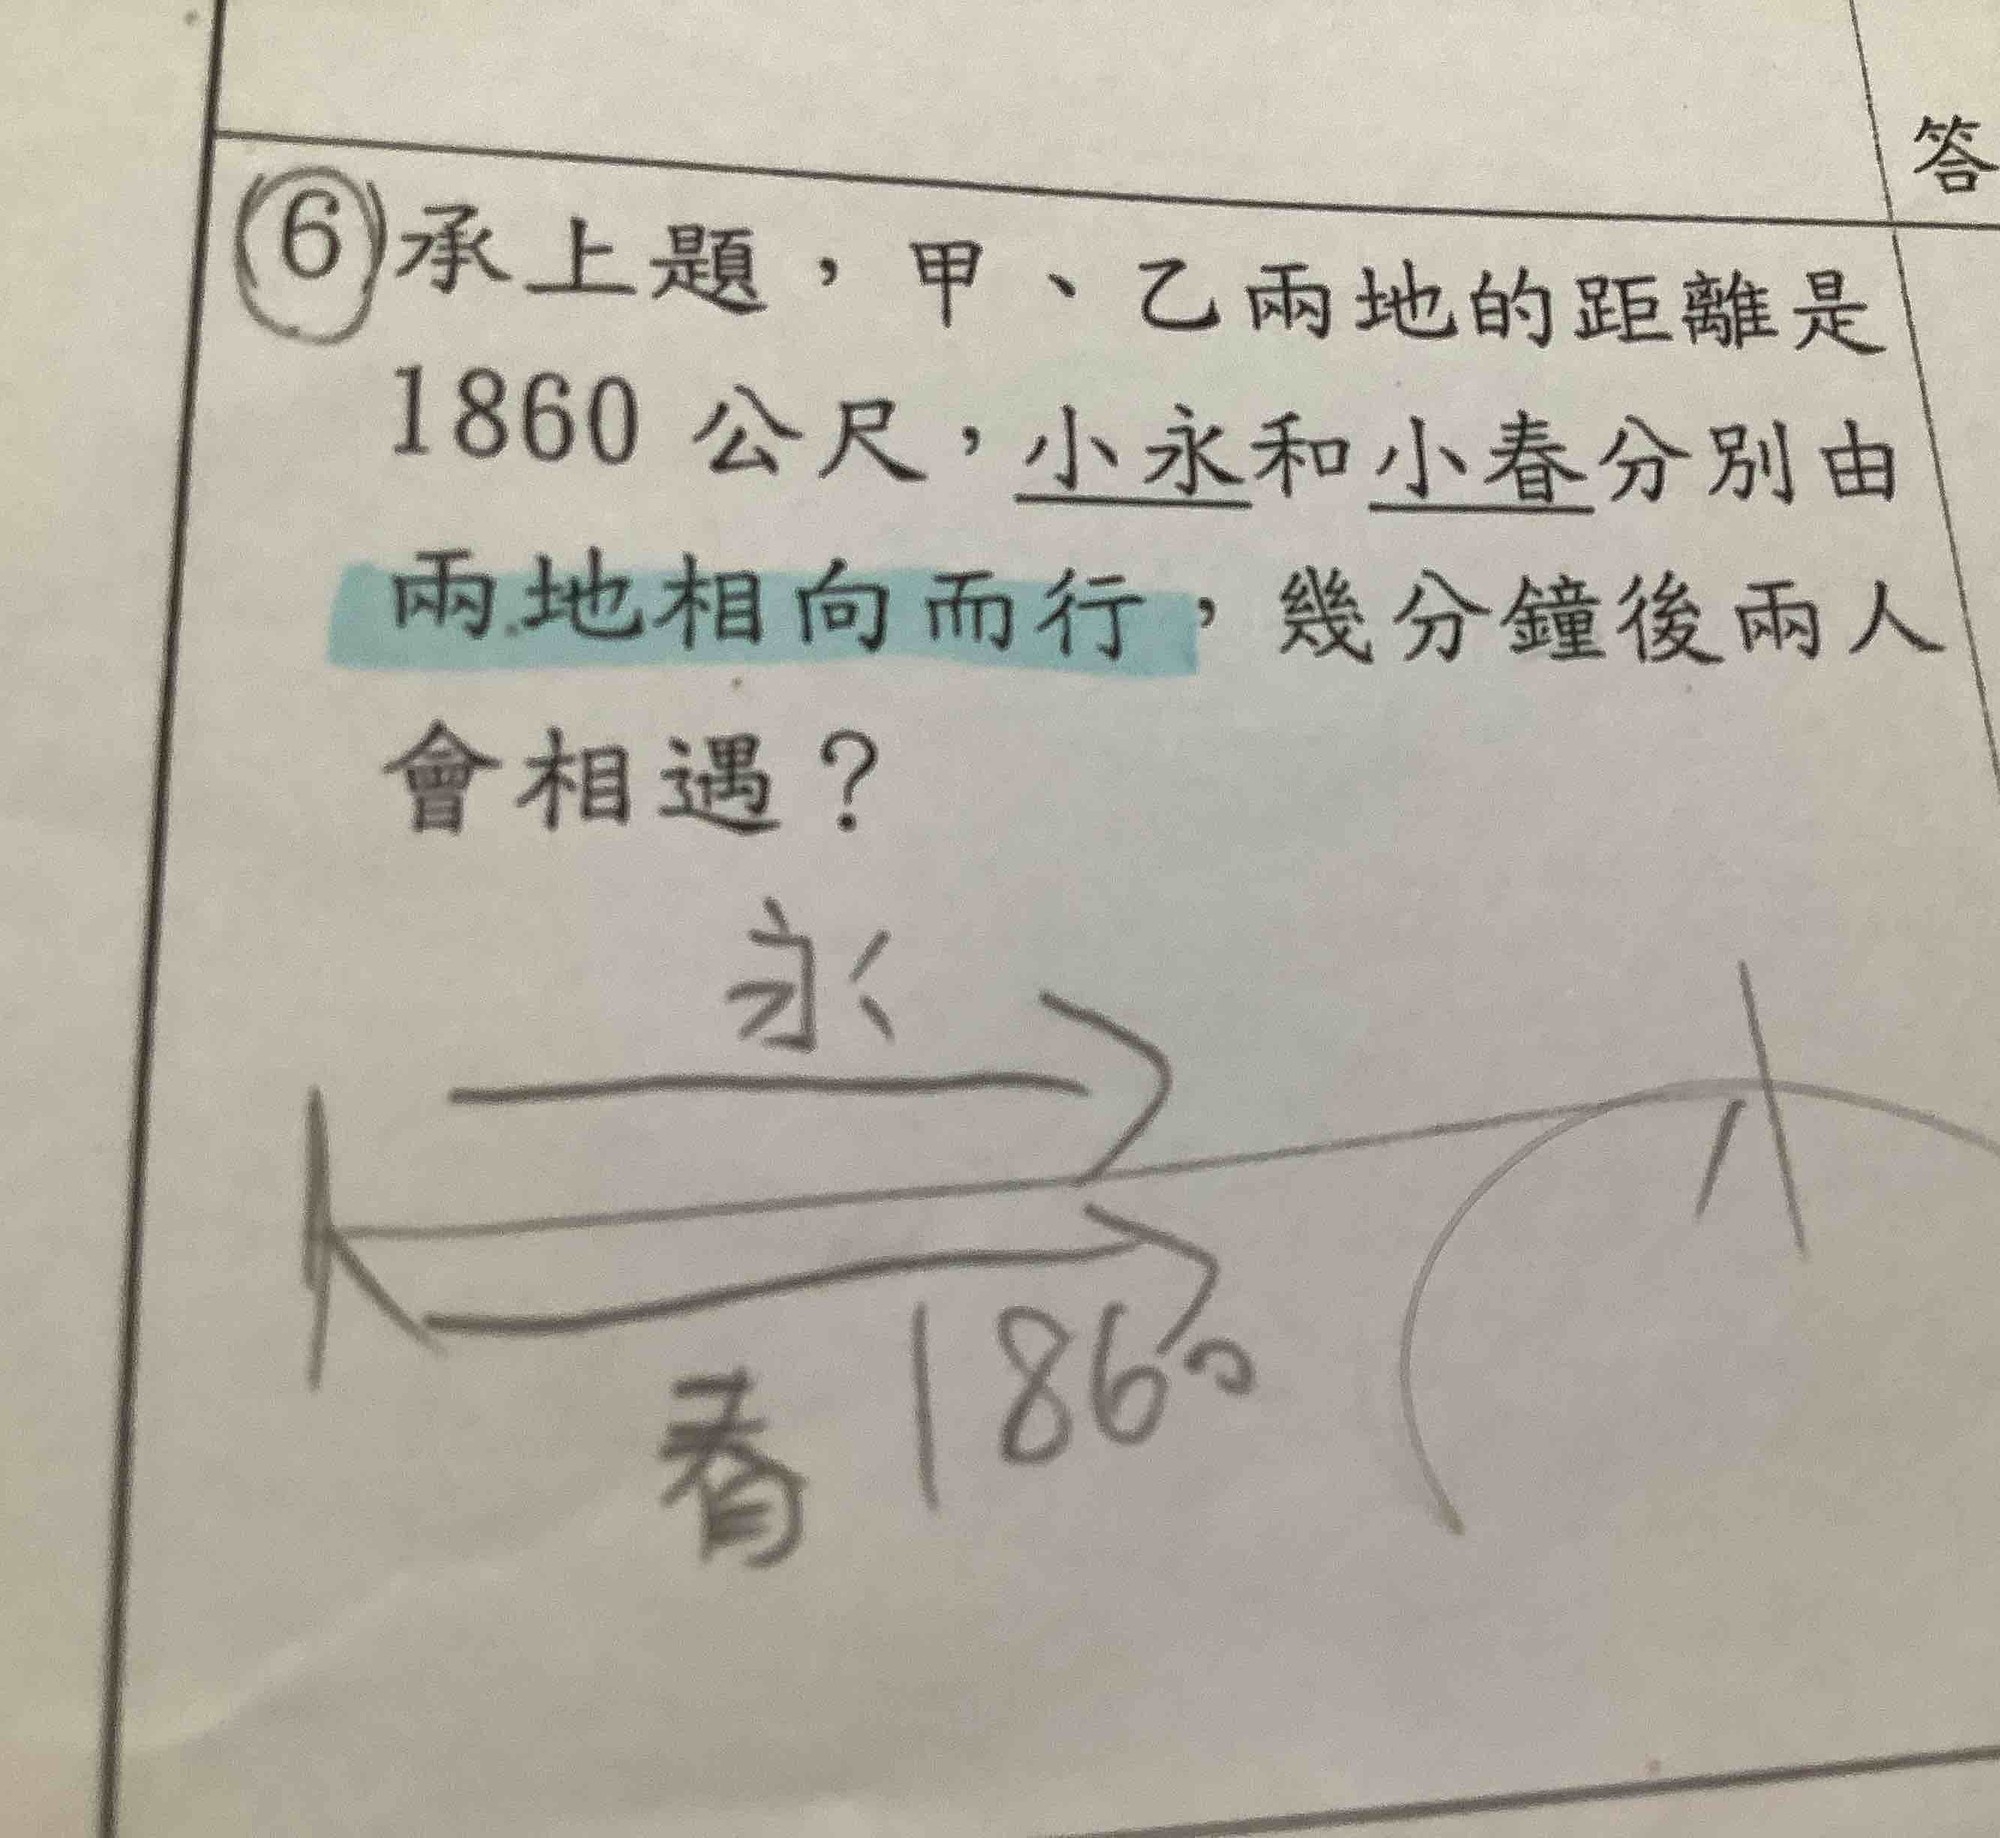 答
(6)承上題，甲、乙兩地的距離是
1860 公尺，小永和小春分別由
兩地相向而行，幾分鐘後兩人
會相遇？
永
春 1860